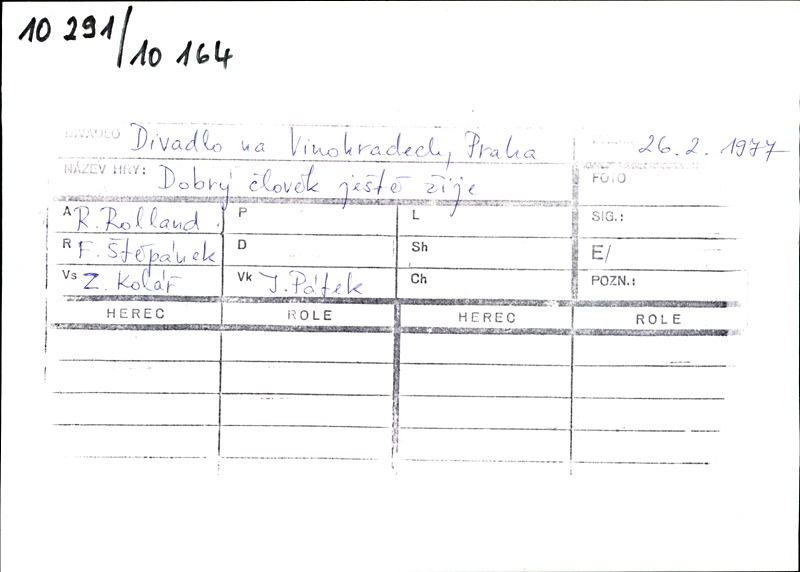 10 291/10 164
DIVADLO Divadlo na Vinohradech, Praha 26. 2. 1977
NÁZEV HRY: Dobrý člověk ještě žije FOTO
A R. Rolland P L SIG.:
R F. Štěpánek D Sh E/
Vs Z. Kolář Vk J. Pátek Ch POZN.:
HEREC ROLE HEREC ROLE